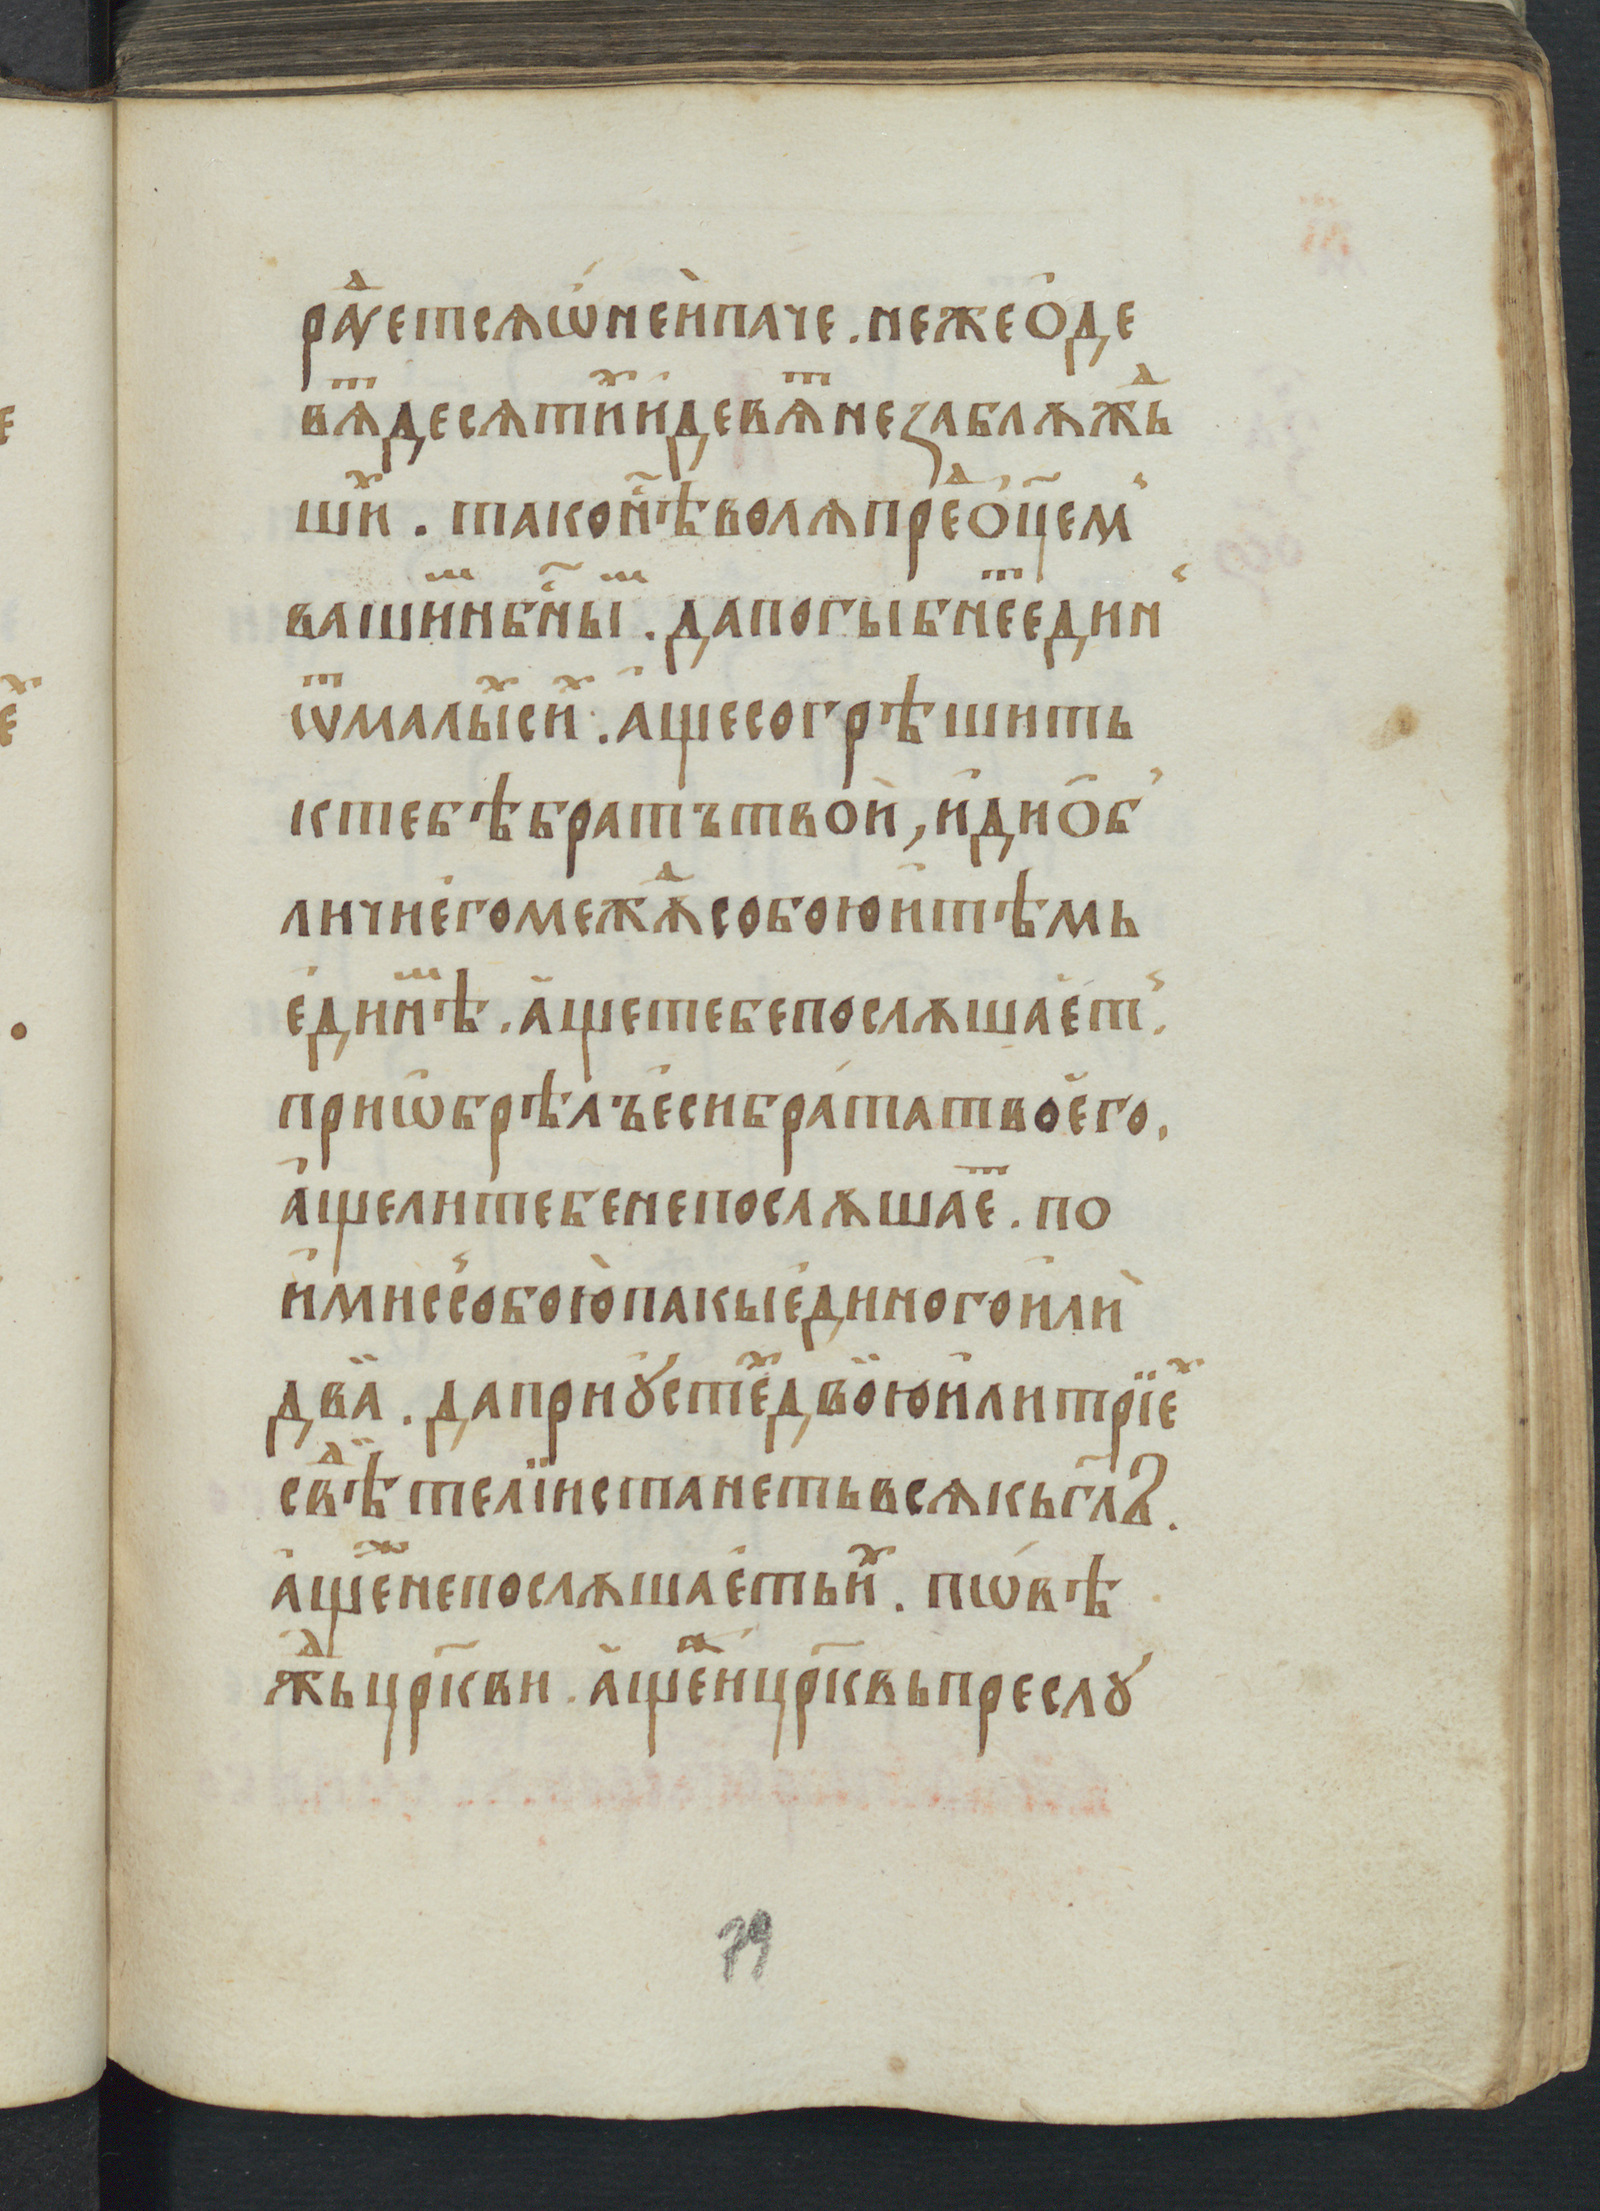 раⷣуетсѧ ѡ҆ нѐи паче . неже ѻ҆ де
вѧⷮ десѧтиⷯ и҆ девѧⷮ не заблѫжⷣь
шиⷯ . тако нⷭ҇ѣ волѧ преⷣ ѻ҆ц҃емъ
вашиⷨ нб҃ⷭныⷨ . да погыбнеⷮ единъ
ѿ малыⷯ сиⷯ . а҆ще согрѣшить
к тебѣ братъ твои , и҆ди ѻ҆б
личи е҆го межⷣѫ собою и҆ тѣмь
е҆динⷨѣ . а҆ще тебе послѫшае҆тъ .
приѡ҆брѣлъ е҆си брата твое҆го .
а҆ще ли тебе не послѫшаеⷮ . по
и҆ми съ собою пакы е҆диного и҆ли
двӓ . да при ꙋ҆стеⷯ двою̈ и҆ли трїеⷯ
свⷣѣтелїи станеть всѧкь гл҃ъ .
а҆щеⷤ не послѫшае҆ть иⷯ . пѡ́вѣ
жⷣь цр҃кви . а҆щеⷤ и҆ цр҃квь преслꙋ
79